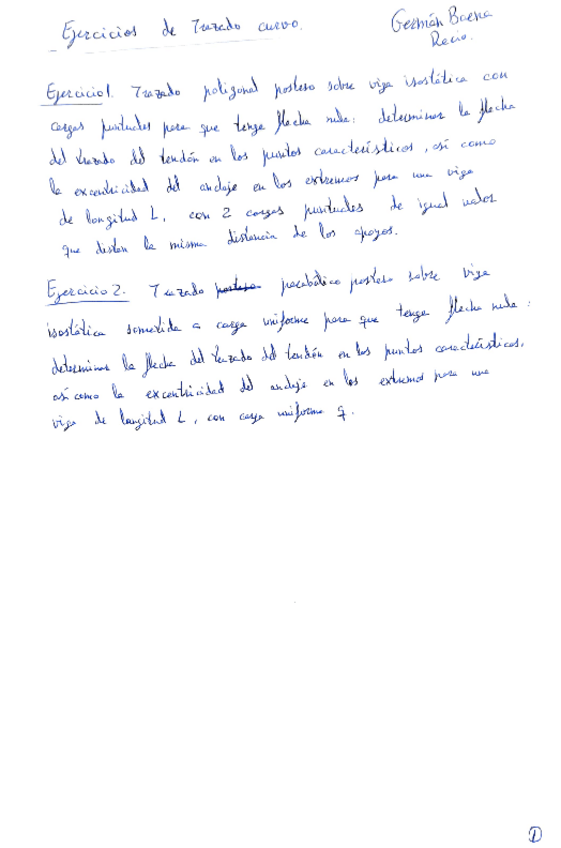 Ejercicios de Trazado curvo.
Germán Baena
Recio.
Ejercicio 1. Trazado poligonal posteso sobre viga isostática con
cargas puntuales para que tenga flecha nula: determinar la flecha
del trazado del tendón en los puntos característicos, así como
la excentricidad del anclaje en los extremos para una viga
de longitud L, con 2 cargas puntuales de igual valor
que distan la misma distancia de los apoyos.
Ejercicio 2. Trazado posteso parabólico posteso sobre viga
isostática sometida a carga uniforme para que tenga flecha nula:
determinar la flecha del trazado del tendón en los puntos característicos,
así como la excentricidad del anclaje en los extremos para una
viga de longitud L, con carga uniforme q.
1